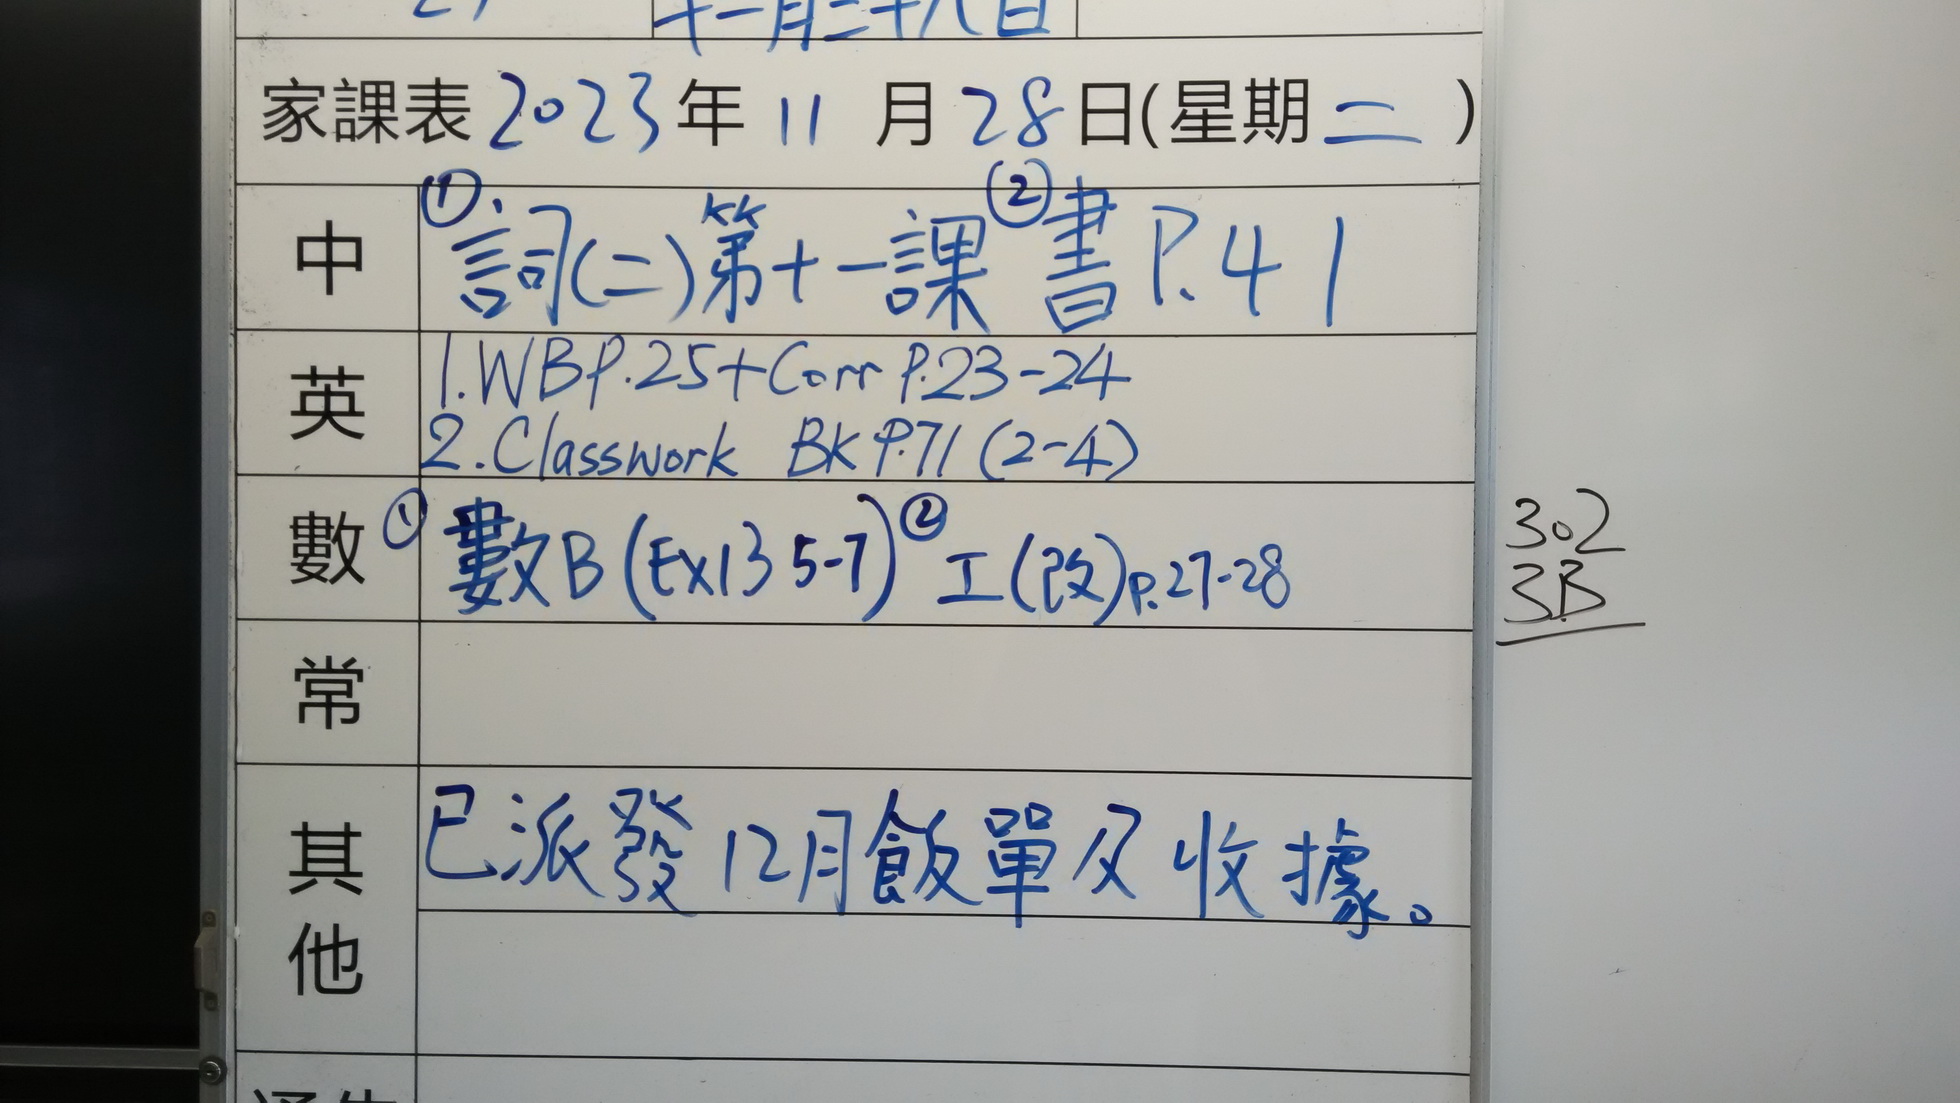 十一月二十八日
家課表 2023 年 11 月 28 日(星期 二 )
中 ① 詞(二)第十一課 ② 書 P.41
英 1. WB P.25 + Corr P.23-24
2. Classwork BK P.71 (2-4)
數 ① 數B (Ex13 5-7) ② 工(改) P.27-28
302
3B
常
其他 已派發12月飯單及收據。